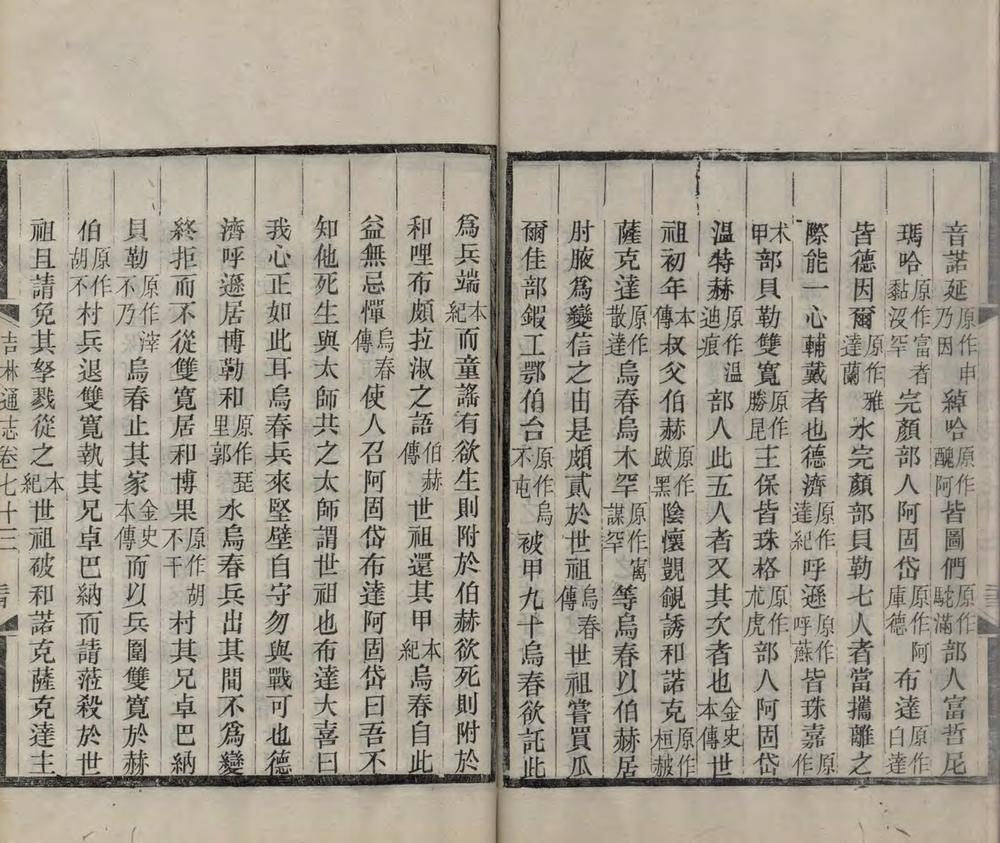 音諾延原作申乃因綽哈原作醜阿皆圖們原作駝滿部人富哲尼
瑪哈原作富者黏沒罕完顏部人阿固岱原作阿庫德布達原作白達
皆德因爾原作雅達蘭水完顏部貝勒七人者當攜離之
際能一心輔戴者也德濟原作達紀呼遜原作呼蘇皆珠嘉原作
朮甲部貝勒雙寬原作勝昆主保皆珠格原作朮虎部人阿固岱
溫特赫原作溫迪痕部人此五人者又其次者也金史本傳世
祖初年本傳叔父伯赫原作跋黑陰懷覬覦誘和諾克原作桓赧
薩克達原作散達烏春烏木罕原作窩謀罕等烏春以伯赫居
肘腋爲變信之由是頗貳於世祖烏春傳世祖嘗買瓜
爾佳部鍜工鄂伯台原作烏不屯被甲九十烏春欲託此
爲兵端本紀而童謠有欲生則附於伯赫欲死則附於
和哩布頗拉淑之語伯赫傳世祖還其甲本紀烏春自此
益無忌憚烏春傳使人召阿固岱布達阿固岱曰吾不
知他死生與太師共之太師謂世祖也布達大喜曰
我心正如此耳烏春兵來堅壁自守勿與戰可也德
濟呼遜居博勒和原作琵里郭水烏春兵出其間不爲變
終拒而不從雙寬居和博果原作胡不干村其兄卓巴納
貝勒原作滓不乃烏春止其家金史本傳而以兵圍雙寬於赫
伯原作胡不村兵退雙寬執其兄卓巴納而請蒞殺於世
祖且請免其孥戮從之本紀世祖破和諾克薩克達主
吉林通志卷七十三